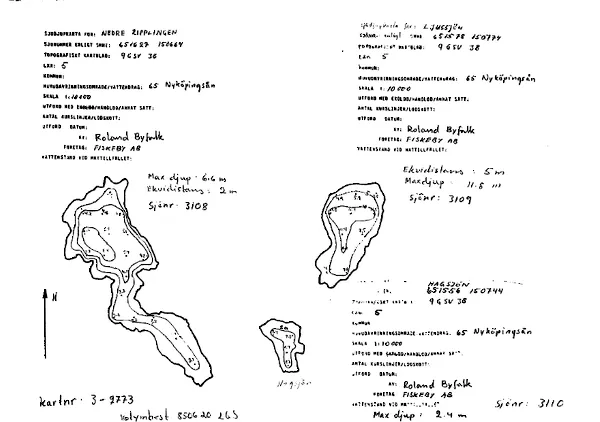 SJÖDJUPKARTA FÖR: NEDRE ZIPPLINGEN
SJÖNUMMER ENLIGT SMHI: 651627 150664
TOPOGRAFISKT KARTBLAD: 9G SV 38
LÄN: 5
KOMMUN:
HUVUDAVRINNINGSOMRÅDE/VATTENDRAG: 65 Nyköpingsån
SKALA 1:10000
UTFÖRD MED EKOLOD/HANDLOD/ANNAT SÄTT:
ANTAL KURSLINJER/LODSKOTT:
UTFÖRD DATUM:
AV: Roland Byfalk
FÖRETAG: FISKEBY AB
VATTENSTAND VID MÄTTILLFÄLLET:
Max djup: 6.6 m
Ekvidistans: 2 m
Sjönr: 3108
N
kartnr: 3-9773
Ljussjön
651578 150774
TOPOGRAFISKT KARTBLAD: 9G SV 38
LÄN 5
KOMMUN:
HUVUDAVRINNINGSOMRÅDE/VATTENDRAG: 65 Nyköpingsån
SKALA 1:10000
UTFÖRD MED EKOLOD/HANDLOD/ANNAT SÄTT:
ANTAL KURSLINJER/LODSKOTT:
UTFÖRD DATUM:
AV: Roland Byfalk
FÖRETAG: FISKEBY AB
VATTENSTAND VID MÄTTILLFÄLLET:
Ekvidistans: 5 m
Max djup: 11.8 m
Sjönr: 3109
HAGSJÖN
651556 150744
9G SV 38
LÄN 5
KOMMUN
HUVUDAVRINNINGSOMRÅDE/VATTENDRAG: 65 Nyköpingsån
SKALA 1:10000
UTFÖRD MED EKOLOD/HANDLOD/ANNAT SÄTT:
ANTAL KURSLINJER/LODSKOTT:
UTFÖRD DATUM:
AV: Roland Byfalk
FÖRETAG FISKEBY AB
VATTENSTAND VID MÄTTILLFÄLLET
Max djup: 2.4 m
Sjönr: 3110
Hagsjön